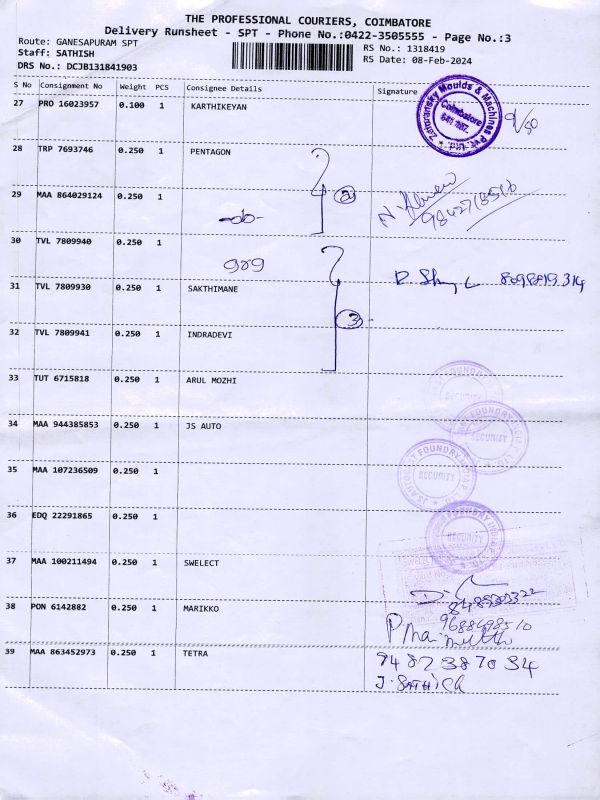 THE PROFESSIONAL COURIERS, COIMBATORE
Delivery Runsheet - SPT - Phone No.:0422-3505555 - Page No.:3
Route: GANESAPURAM SPT
Staff: SATHISH
DRS No.: DCJB131841903
RS No.: 1318419
RS Date: 08-Feb-2024
S No Consignment No Weight PCS Consignee Details Signature
27 PRO 16023957 0.100 1 KARTHIKEYAN
Zahoransky Moulds & Machines Pvt. Ltd.
Coimbatore
28 TRP 7693746 0.250 1 PENTAGON
29 MAA 864029124 0.250 1
-do-
2
30 TVL 7809940 0.250 1
31 TVL 7809930 0.250 1 SAKTHIMANE
3
32 TVL 7809941 0.250 1 INDRADEVI
33 TUT 6715818 0.250 1 ARUL MOZHI
34 MAA 944385853 0.250 1 JS AUTO
35 MAA 107236509 0.250 1
SECURITY
SECURITY
36 EDQ 22291865 0.250 1
SECURITY
37 MAA 100211494 0.250 1 SWELECT
38 PON 6142882 0.250 1 MARIKKO
9688698510
39 MAA 863452973 0.250 1 TETRA
9487387034
J. SATHISH